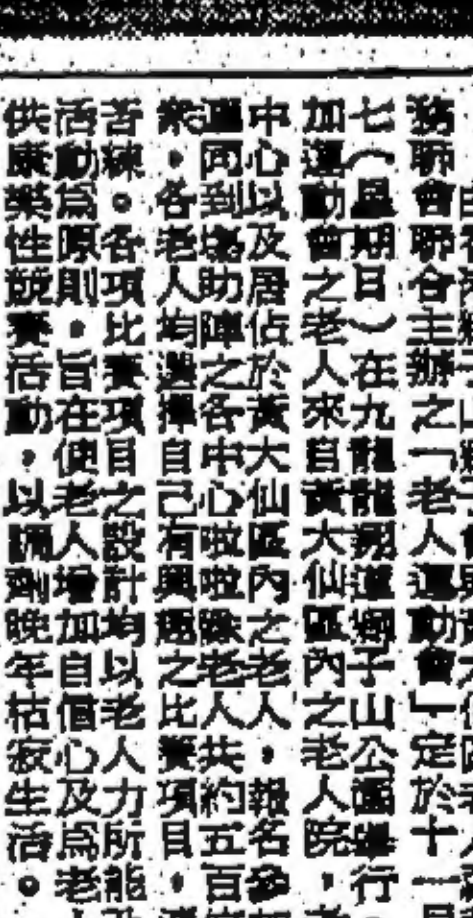 務聯會聯合主辦之「老人運動會」定於十一月
七(星期日)在九龍龍翔道獅子山公園舉行
加運動會之老人來自黃大仙區內之老人院
中心以及居住於黃大仙區內之老人,報名參
還同到場助陣之各中心啦啦隊老人共約五百
衆。各老人均選擇自己有興趣之比賽項目,
苦練。各項比賽項目之設計均以老人力所能
活動爲原則。旨在使老人增加自信心及爲老人
供康樂性競賽活動,以調劑晚年枯寂生活。